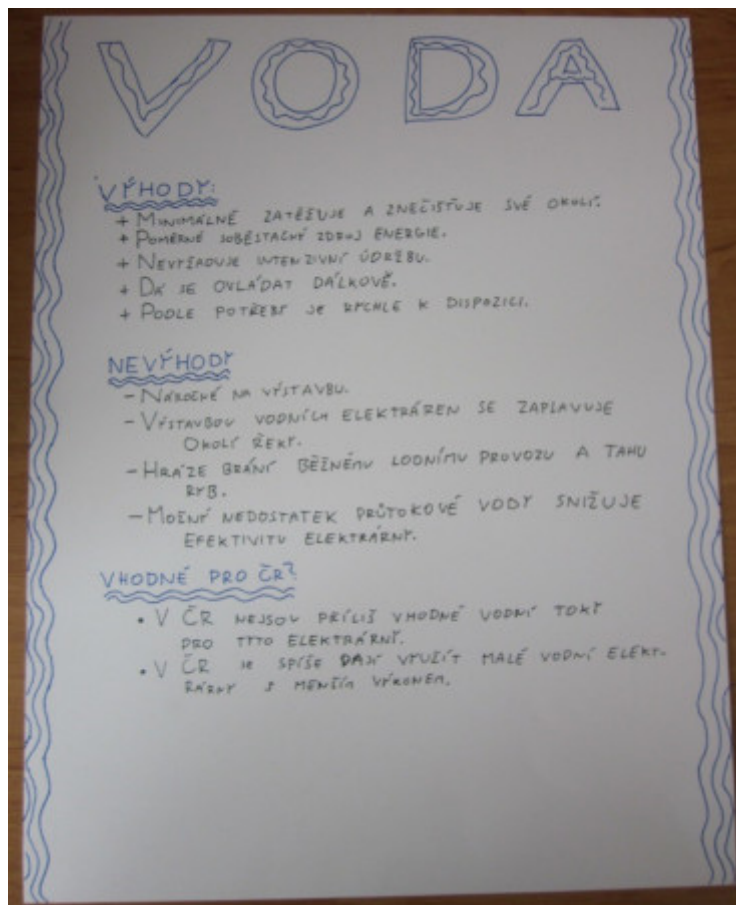 VODA
VÝHODY:
+ MINIMÁLNĚ ZATĚŽUJE A ZNEČIŠŤUJE SVÉ OKOLÍ.
+ POMĚRNĚ SOBĚSTAČNÝ ZDROJ ENERGIE.
+ NEVYŽADUJE INTENZIVNÍ ÚDRŽBU.
+ DÁ SE OVLÁDAT DÁLKOVĚ.
+ PODLE POTŘEBY JE RYCHLE K DISPOZICI.
NEVÝHODY
- NÁROČNÉ NA VÝSTAVBU.
- VÝSTAVBOU VODNÍCH ELEKTRÁREN SE ZAPLAVUJE
OKOLÍ ŘEKY.
- HRÁZE BRÁNÍ BĚŽNÉMU LODNÍMU PROVOZU A TAHU
RYB.
- MOŽNÝ NEDOSTATEK PRŮTOKOVÉ VODY SNIŽUJE
EFEKTIVITU ELEKTRÁRNY.
VHODNÉ PRO ČR?
• V ČR NEJSOU PŘÍLIŠ VHODNÉ VODNÍ TOKY
PRO TYTO ELEKTRÁRNY.
• V ČR SE SPÍŠE DAJÍ VYUŽÍT MALÉ VODNÍ ELEKT-
RÁRNY S MENŠÍM VÝKONEM.